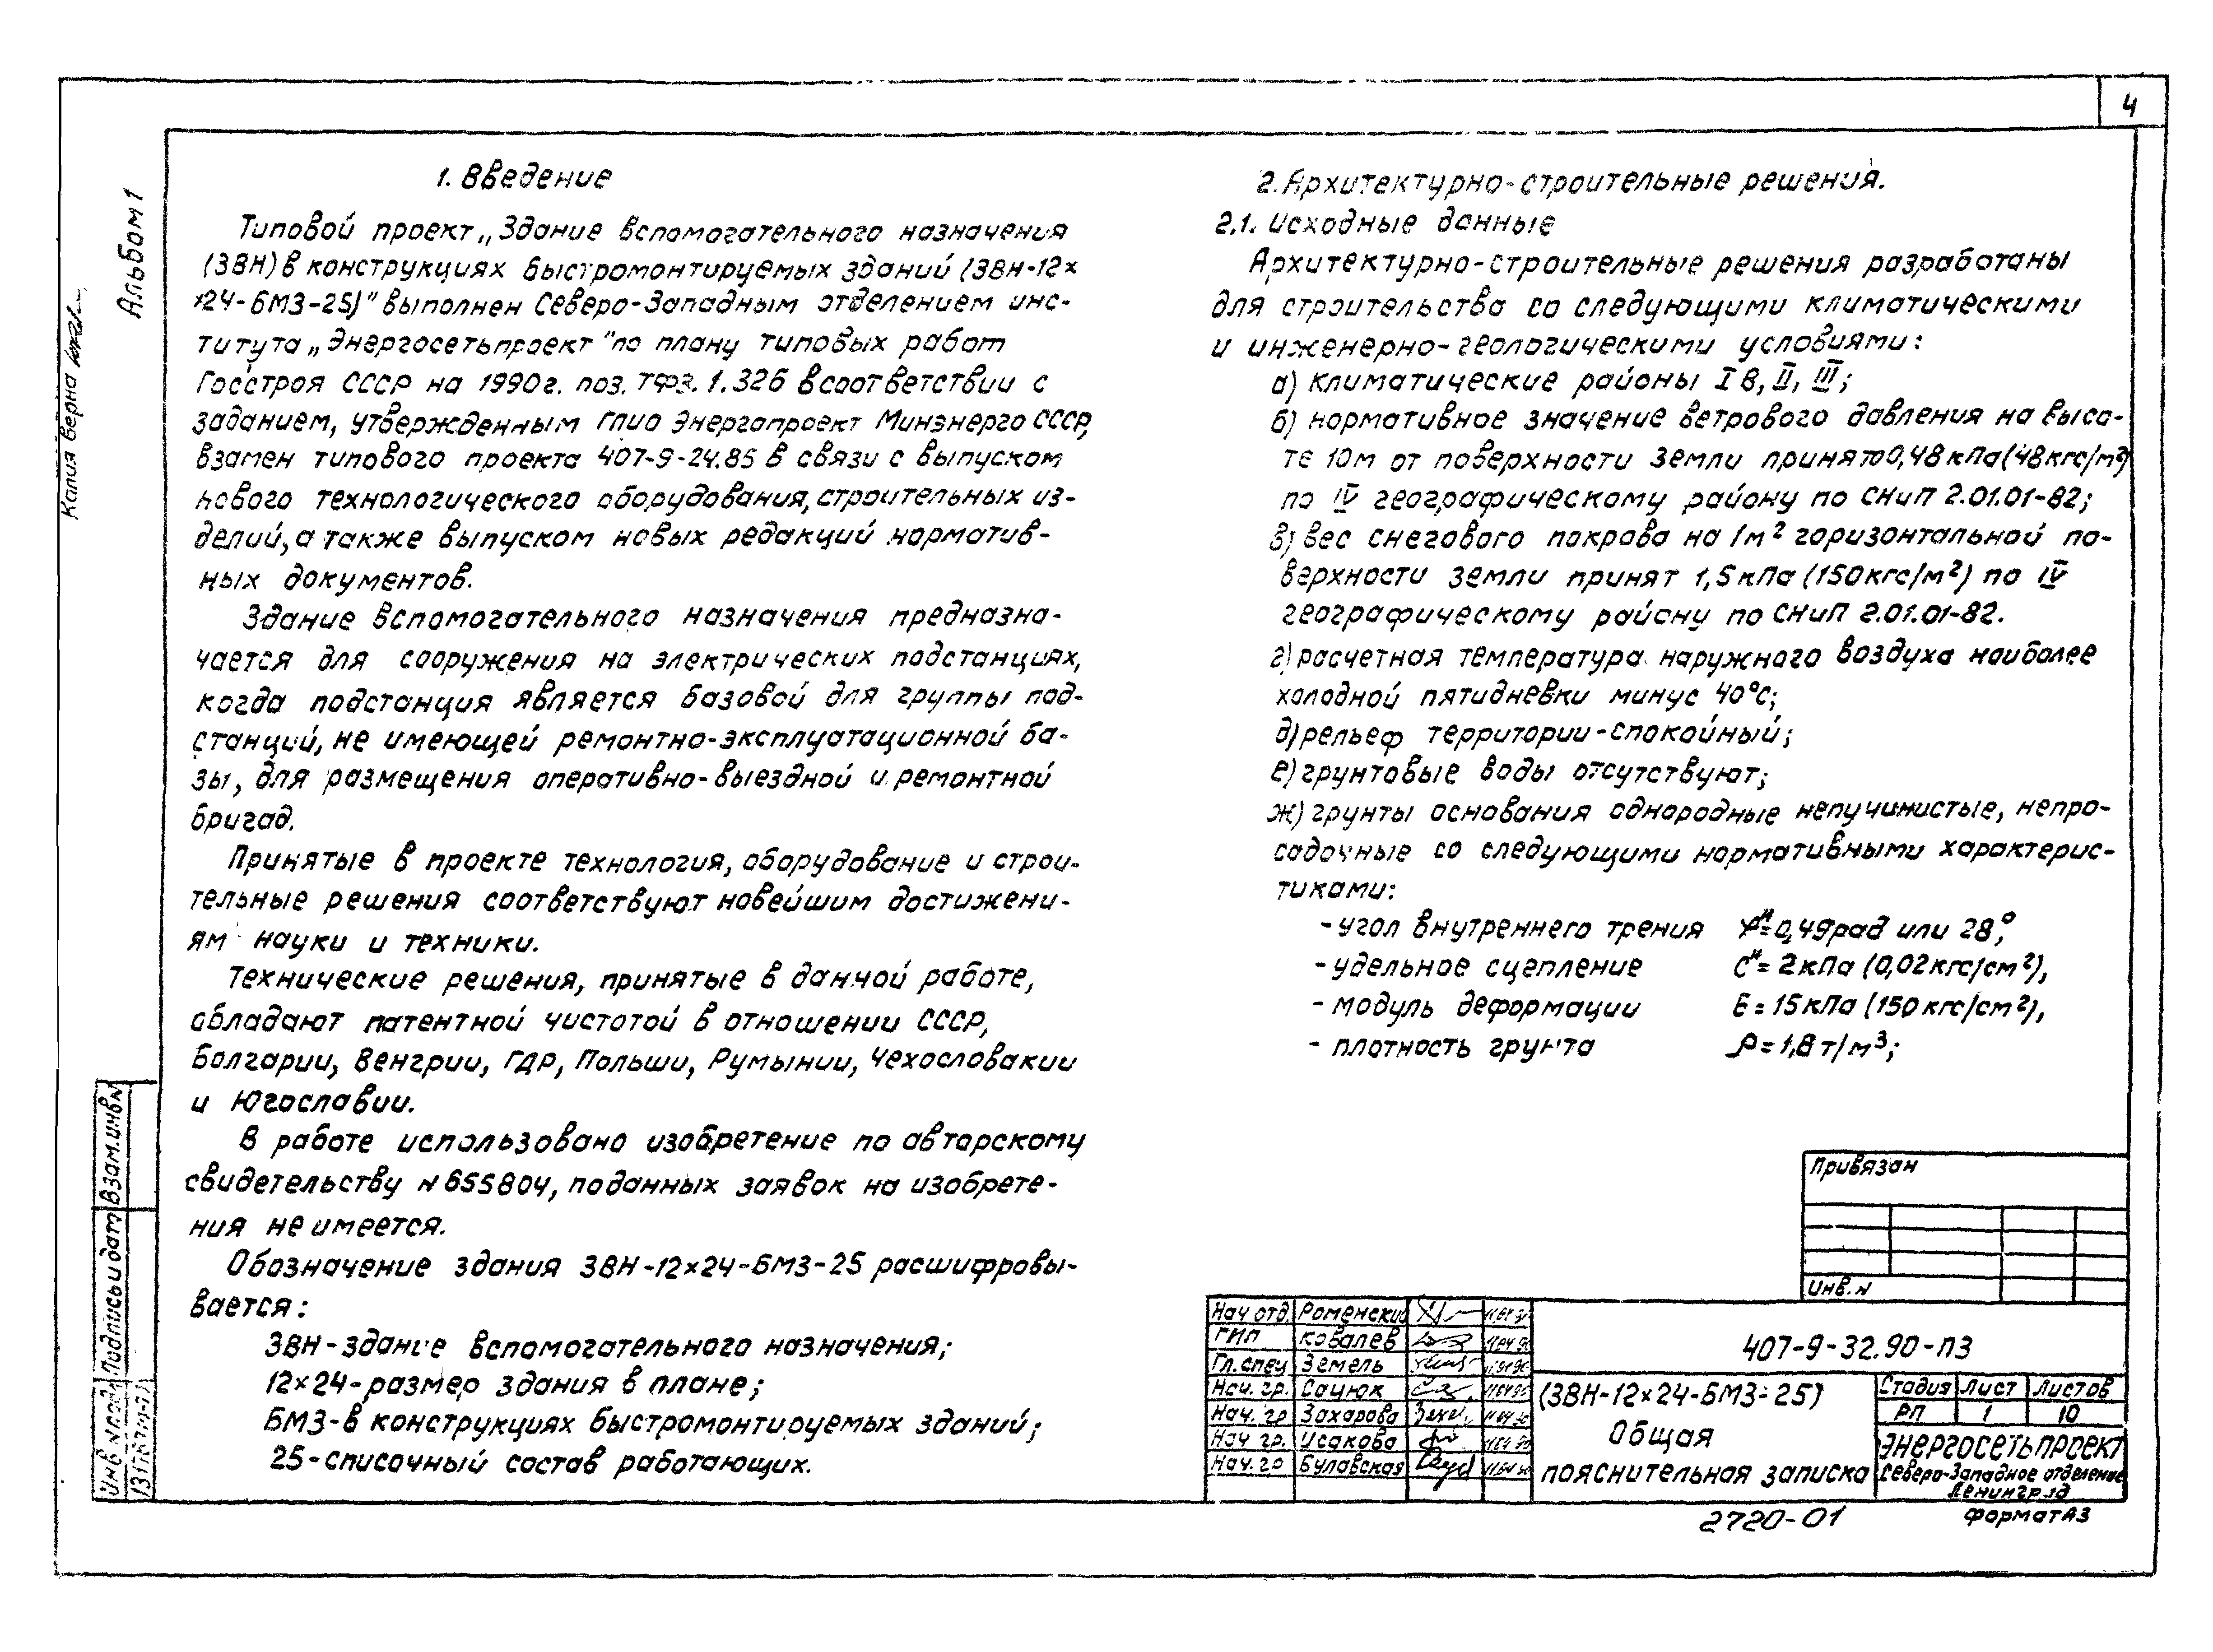 4
Альбом 1
Копия верна
1. Введение
Типовой проект „Здание вспомогательного назначения
(ЗВН) в конструкциях быстромонтируемых зданий (ЗВН-12×
×24-БМЗ-25)" выполнен Северо-Западным отделением инс-
титута „Энергосетьпроект" по плану типовых работ
Госстроя СССР на 1990г. поз. ТФЗ. 1.326 в соответствии с
заданием, утвержденным ГПИО Энергопроект Минэнерго СССР,
взамен типового проекта 407-9-24.85 в связи с выпуском
нового технологического оборудования, строительных из-
делий, а также выпуском новых редакций норматив-
ных документов.
Здание вспомогательного назначения предназна-
чается для сооружения на электрических подстанциях,
когда подстанция является базовой для группы под-
станций, не имеющей ремонтно-эксплуатационной ба-
зы, для размещения оперативно-выездной и ремонтной
бригад.
Принятые в проекте технология, оборудование и строи-
тельные решения соответствуют новейшим достижени-
ям науки и техники.
Технические решения, принятые в данной работе,
обладают патентной чистотой в отношении СССР,
Болгарии, Венгрии, ГДР, Польши, Румынии, Чехословакии
и Югославии.
В работе использовано изобретение по авторскому
свидетельству N 655804, поданных заявок на изобрете-
ния не имеется.
Обозначение здания ЗВН-12×24-БМЗ-25 расшифровы-
вается:
ЗВН-здание вспомогательного назначения;
12×24-размер здания в плане;
БМЗ-в конструкциях быстромонтируемых зданий;
25-списочный состав работающих.
2. Архитектурно-строительные решения.
2.1. Исходные данные
Архитектурно-строительные решения разработаны
для строительства со следующими климатическими
и инженерно-геологическими условиями:
а) климатические районы I В, II, III;
б) нормативное значение ветрового давления на высо-
те 10м от поверхности земли принято 0,48 кПа (48кгс/м²)
по IV географическому району по СНиП 2.01.01-82;
в) вес снегового покрова на 1м² горизонтальной по-
верхности земли принят 1,5кПа (150кгс/м²) по IV
географическому району по СНиП 2.01.01-82.
г) расчетная температура наружного воздуха наиболее
холодной пятидневки минус 40°С;
д) рельеф территории-спокойный;
е) грунтовые воды отсутствуют;
ж) грунты основания однородные непучинистые, непро-
садочные со следующими нормативными характерис-
тиками:
-угол внутреннего трения φᴴ=0,49рад или 28°,
-удельное сцепление Cᴴ= 2кПа (0,02кгс/см²),
- модуль деформации E = 15кПа (150 кгс/см²),
- плотность грунта ρ = 1,8 т/м³;
Привязан
Инв. N
Нач отд. Роменский
ГИП Ковалев
Гл. спец Земель
Нач. гр. Сацюк
Нач. гр Захарова
Нач гр. Исакова
Нач. гр Булавская
407-9-32.90-ПЗ
(ЗВН-12×24-БМЗ-25)
Общая
пояснительная записка
Стадия Лист Листов
РП 1 10
Энергосетьпроект
Северо-Западное отделение
Ленинград
2720-01
Формат А3
Взам. инв. N
Подпись и дат
Инв N подл